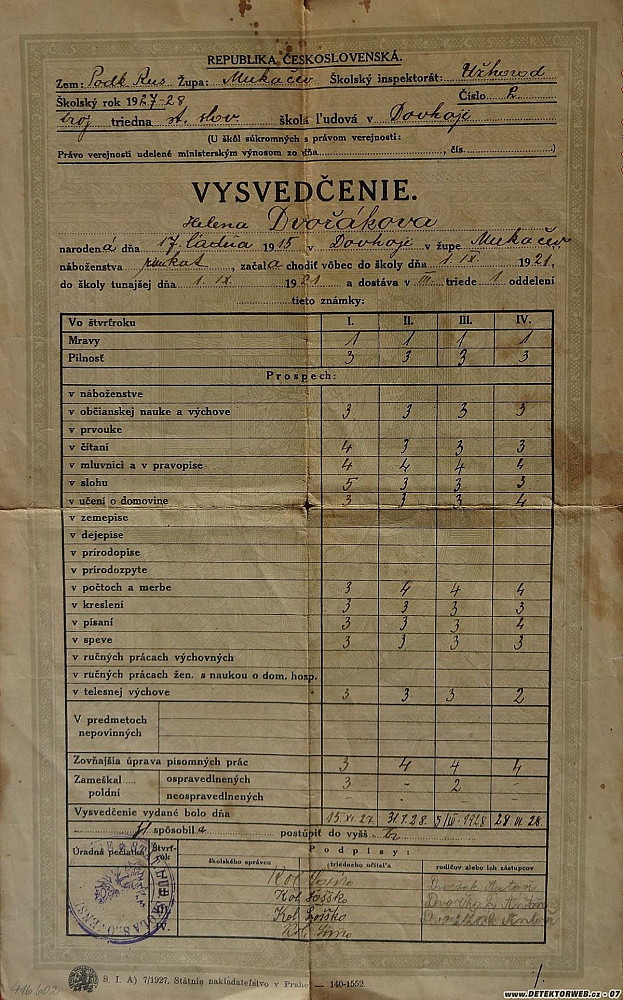 REPUBLIKA ČESKOSLOVENSKÁ.
Zem: Podk Rus. Župa: Mukačev Školský inspektorát: Užhorod
Školský rok 1927-28 Číslo 2
troj triedna st. slov škola ľudová v Dovhoje
(U škôl súkromných s právom verejnosti:
Právo verejnosti udelené ministerským výnosom zo dňa , čís. )
VYSVEDČENIE.
Helena Dvořákova
narodená dňa 17. ľadna 1915 v Dovhoje v župe Mukačev
náboženstva rímkat , začala chodiť vôbec do školy dňa 1. IX. 1921,
do školy tunajšej dňa 1. IX. 1921 a dostáva v III triede 1 oddelení
tieto známky:
Vo štvrťroku I. II. III. IV.
Mravy 1 1 1 1
Pilnosť 3 3 3 3
Prospech:
v náboženstve
v občianskej nauke a výchove 3 3 3 3
v prvouke
v čítaní 4 3 3 3
v mluvnici a v pravopise 4 4 4 4
v slohu 5 3 3 3
v učení o domovine 3 3 3 4
v zemepise
v dejepise
v prírodopise
v prírodozpyte
v počtoch a merbe 3 4 4 4
v kreslení 3 3 3 3
v písaní 3 3 3 4
v speve 3 3 3 3
v ručných prácach výchovných
v ručných prácach žen. s naukou o dom. hosp.
v telesnej výchove 3 3 3 2
V predmetoch nepovinných
Zovňajšia úprava písomných prác 3 4 4 4
Zameškal poldní ospravedlnených 3 - 2 -
neospravedlnených
Vysvedčenie vydané bolo dňa 15. XI. 27. 31 I. 28. 1928 28 VI. 28.
spôsobila postúpiť do vyšš.
Úradná pečiatka Štvrť-rok Podpisy:
školského správcu triedneho učiteľa rodičov alebo ich zástupcov
Dvořak Antón
Dvořak Antón
Dvořak Antón
S. I. A) 7/1927. Státnie nakladateľstvo v Prahe. — 140-1552.
416602
www.DETEKTORWEB.cz - 07